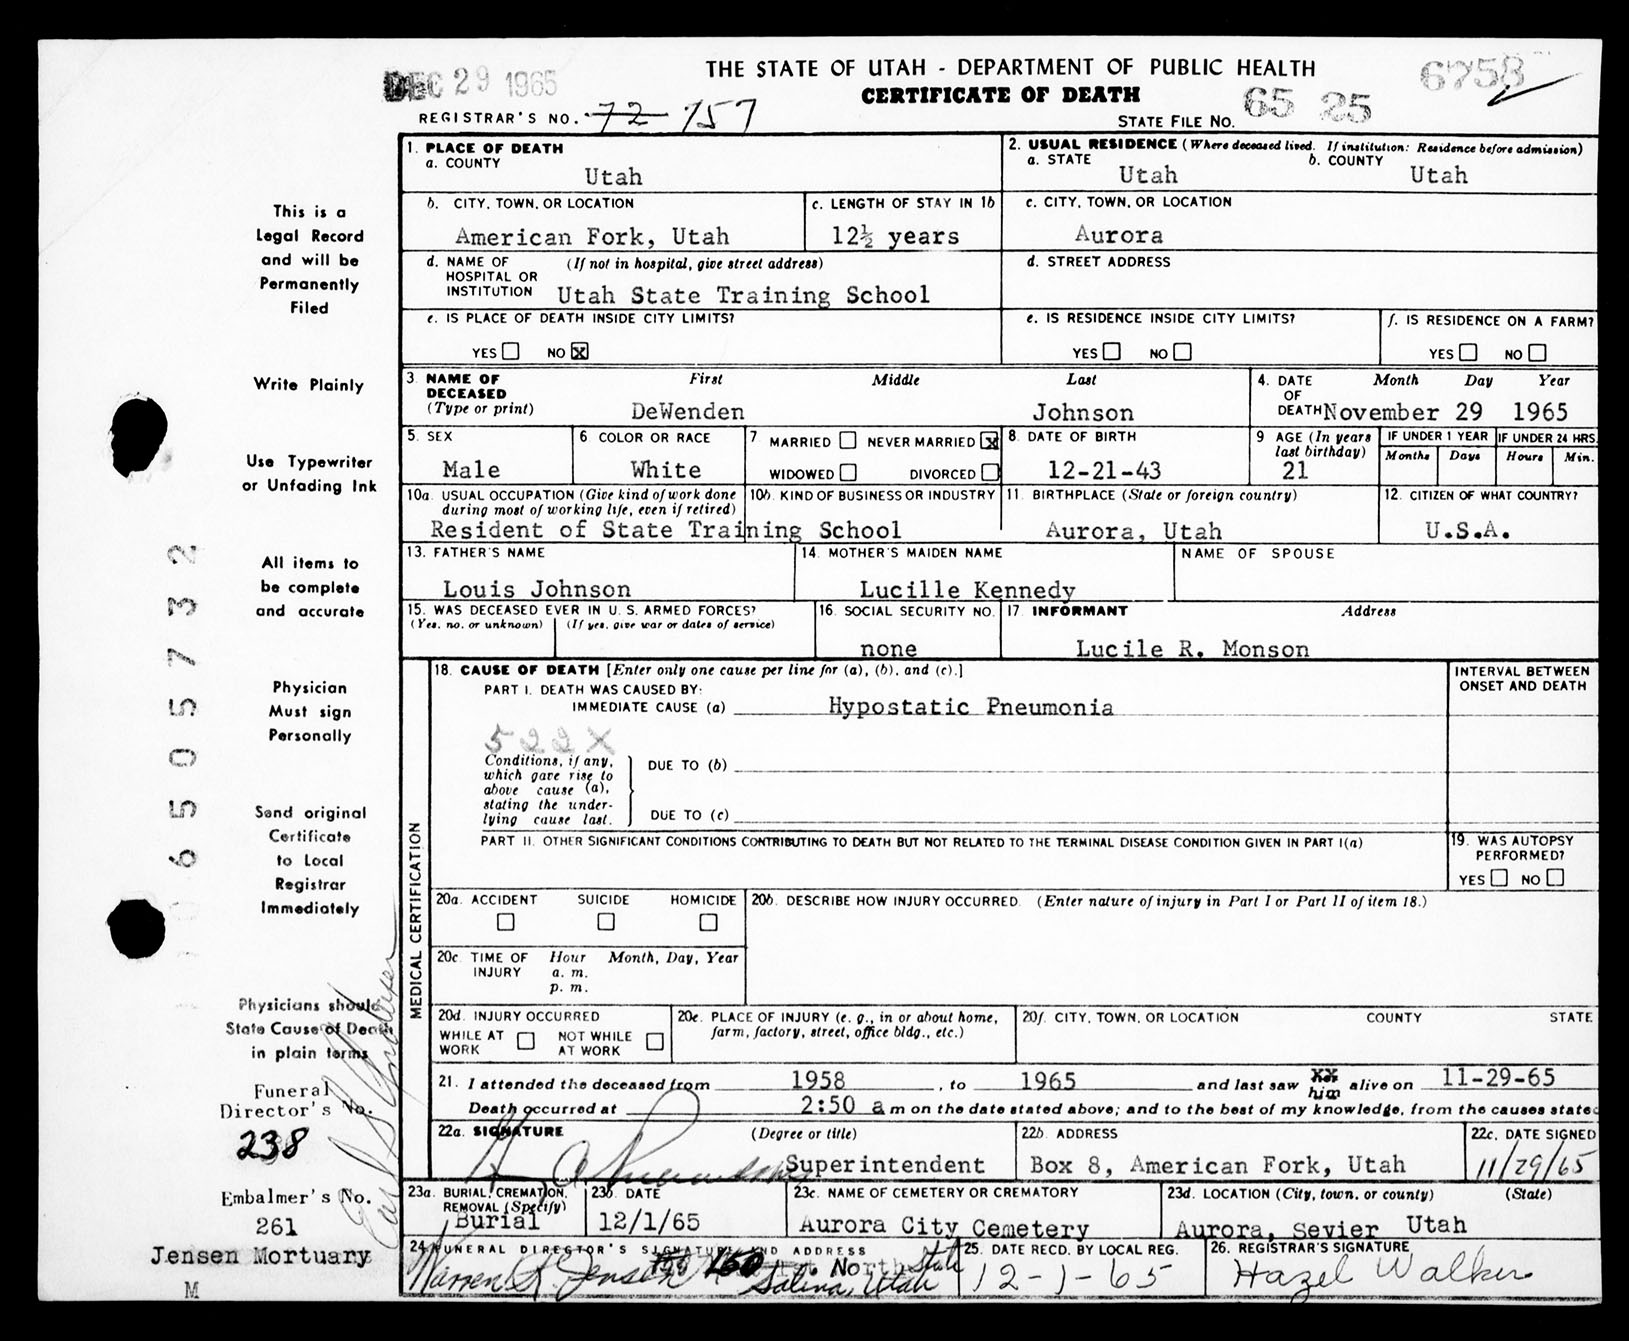 DEC 29 1965
THE STATE OF UTAH - DEPARTMENT OF PUBLIC HEALTH
6758
CERTIFICATE OF DEATH
REGISTRAR'S NO. 72 757
STATE FILE NO. 65 25
This is a
Legal Record
and will be
Permanently
Filed
Write Plainly
Use Typewriter
or Unfading Ink
All items to
be complete
and accurate
Physician
Must sign
Personally
Send original
Certificate
to Local
Registrar
Immediately
Physicians should
State Cause of Death
in plain terms
Funeral
Director's No.
238
Embalmer's No.
261
Jensen Mortuary
M
06505732
1. PLACE OF DEATH
a. COUNTY
Utah
2. USUAL RESIDENCE (Where deceased lived. If institution: Residence before admission)
a. STATE b. COUNTY
Utah Utah
b. CITY, TOWN, OR LOCATION
American Fork, Utah
c. LENGTH OF STAY IN 1b
12½ years
c. CITY, TOWN, OR LOCATION
Aurora
d. NAME OF (If not in hospital, give street address)
HOSPITAL OR
INSTITUTION Utah State Training School
d. STREET ADDRESS
e. IS PLACE OF DEATH INSIDE CITY LIMITS?
YES NO X
e. IS RESIDENCE INSIDE CITY LIMITS?
YES NO
f. IS RESIDENCE ON A FARM?
YES NO
3. NAME OF First Middle Last
DECEASED
(Type or print) DeWenden Johnson
4. DATE Month Day Year
OF
DEATH November 29 1965
5. SEX
Male
6 COLOR OR RACE
White
7 MARRIED NEVER MARRIED X
WIDOWED DIVORCED
8. DATE OF BIRTH
12-21-43
9 AGE (In years
last birthday)
21
IF UNDER 1 YEAR
Months Days
IF UNDER 24 HRS.
Hours Min.
10a. USUAL OCCUPATION (Give kind of work done
during most of working life, even if retired)
10b. KIND OF BUSINESS OR INDUSTRY
Resident of State Training School
11. BIRTHPLACE (State or foreign country)
Aurora, Utah
12. CITIZEN OF WHAT COUNTRY?
U.S.A.
13. FATHER'S NAME
Louis Johnson
14. MOTHER'S MAIDEN NAME
Lucille Kennedy
NAME OF SPOUSE
15. WAS DECEASED EVER IN U. S. ARMED FORCES?
(Yes, no. or unknown) (If yes, give war or dates of service)
16. SOCIAL SECURITY NO.
none
17. INFORMANT Address
Lucile R. Monson
MEDICAL CERTIFICATION
18. CAUSE OF DEATH [Enter only one cause per line for (a), (b), and (c).]
INTERVAL BETWEEN
ONSET AND DEATH
PART I. DEATH WAS CAUSED BY:
IMMEDIATE CAUSE (a) Hypostatic Pneumonia
522X
Conditions, if any,
which gave rise to
above cause (a),
stating the under-
lying cause last.
DUE TO (b)
DUE TO (c)
PART II. OTHER SIGNIFICANT CONDITIONS CONTRIBUTING TO DEATH BUT NOT RELATED TO THE TERMINAL DISEASE CONDITION GIVEN IN PART I(a)
19. WAS AUTOPSY
PERFORMED?
YES NO
20a. ACCIDENT SUICIDE HOMICIDE
20b. DESCRIBE HOW INJURY OCCURRED. (Enter nature of injury in Part I or Part II of item 18.)
20c. TIME OF Hour Month, Day, Year
INJURY a. m.
p. m.
20d. INJURY OCCURRED
WHILE AT NOT WHILE
WORK AT WORK
20e. PLACE OF INJURY (e. g., in or about home,
farm, factory, street, office bldg., etc.)
20f. CITY, TOWN, OR LOCATION COUNTY STATE
21. I attended the deceased from 1958, to 1965 and last saw her him alive on 11-29-65
Death occurred at 2:50 a m on the date stated above; and to the best of my knowledge, from the causes stated
22a. SIGNATURE (Degree or title)
Superintendent
22b. ADDRESS
Box 8, American Fork, Utah
22c. DATE SIGNED
11/29/65
23a. BURIAL, CREMATION,
REMOVAL (Specify)
Burial
23b. DATE
12/1/65
23c. NAME OF CEMETERY OR CREMATORY
Aurora City Cemetery
23d. LOCATION (City, town, or county) (State)
Aurora, Sevier Utah
24 FUNERAL DIRECTOR'S SIGNATURE AND ADDRESS
Warren L. Jensen 150 North State
Salina, Utah
25. DATE RECD. BY LOCAL REG.
12-1-65
26. REGISTRAR'S SIGNATURE
Hazel Walker